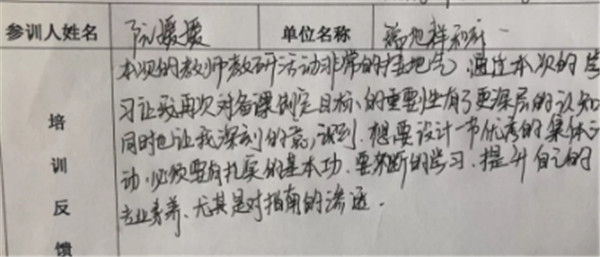 参训人姓名 阮媛媛 单位名称
本次的教师教研活动非常的接地气，通过本次的学
习让我再次对备课制定目标的重要性有了更深层的认知
同时也让我深刻的意识到，想要设计一节优秀的集体活
动，必须要有扎实的基本功，要不断的学习，提升自己的
专业素养，尤其是对指南的渗透.
培训反馈